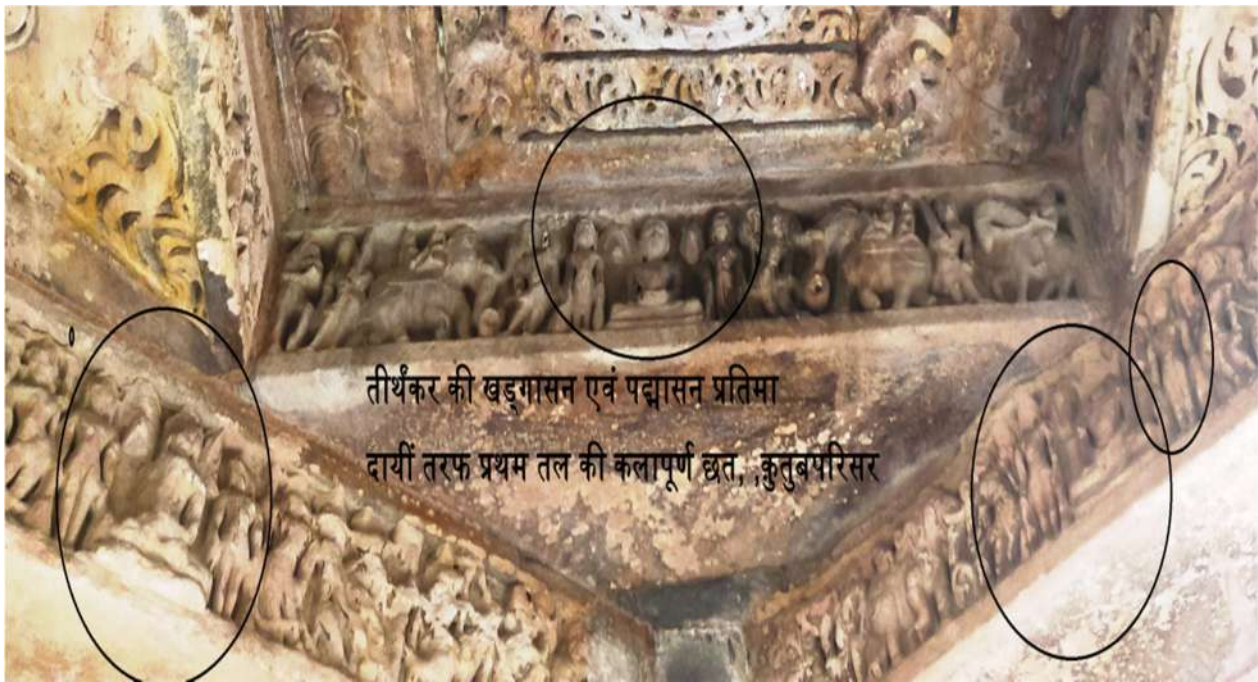 तीर्थंकर की खड्गासन एवं पद्मासन प्रतिमा
दायीं तरफ प्रथम तल की कलापूर्ण छत, ,कुतुबपरिसर